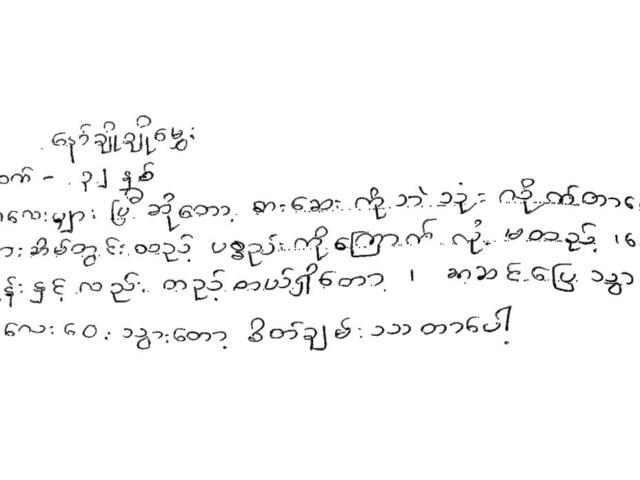 နော်ချိုချိုမွှေး
သက် - ၃၂ နှစ်
လေးများ ပြီ ဆိုတော့ စားဆေး ကို ဘဲ သုံး လိုက်တာ
အိမ်တွင်း ထည့် ပစ္စည်း ကို ကြောက် လို့ မထည့် ၊
နှင့် လည်း တည့် တယ်ရှိတော့ ၊ အဆင်ပြေ သွား
လေး ဝေး သွားတော့ စိတ်ချမ်း သာ တာပေါ့